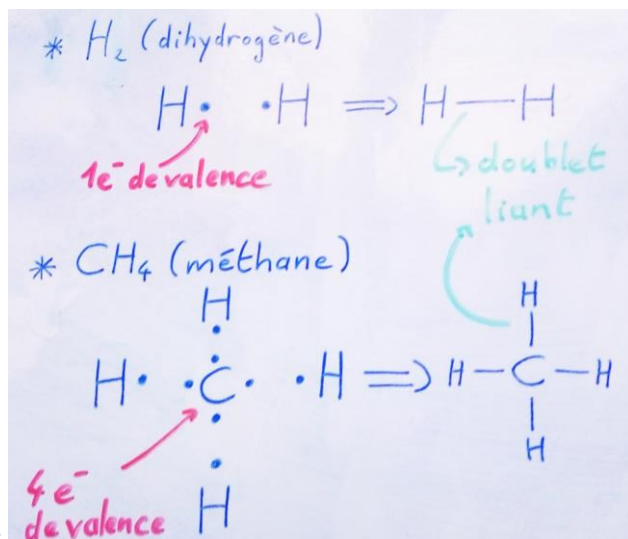 * H₂ (dihydrogène)
H• •H ⇒ H—H
1e⁻ de valence
↳ doublet
liant
* CH₄ (méthane)
H
H
H• •C• •H ⇒ H—C—H
H
4e⁻
de valence
H